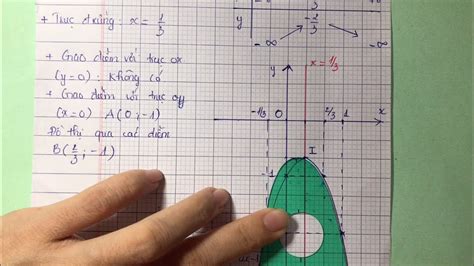 + Trục đx đứng: x = 1/3
+ Giao điểm với trục ox
(y = 0): không có
+ Giao điểm với trục oy
(x = 0) A(0; -1)
Đồ thị qua các điểm
B(2/3; -1)
y
-∞
-2/3
-∞
y
x = 1/3
-1/3
0
2/3
1
x
I
-1